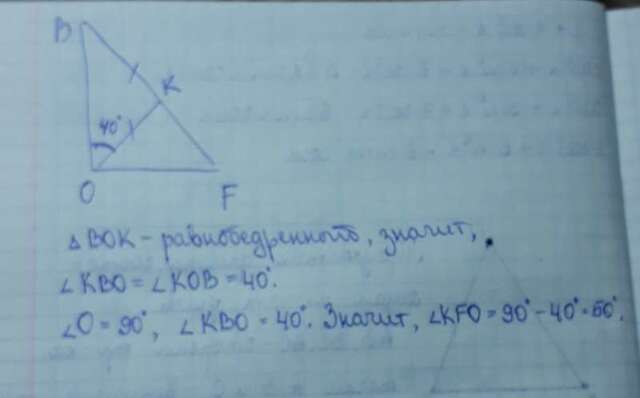 B
K
40°
O
F
△ BOK – равнобедренный, значит,
∠KBO = ∠KOB = 40°.
∠O = 90°, ∠KBO = 40°. Значит, ∠KFO = 90° – 40° = 50°.